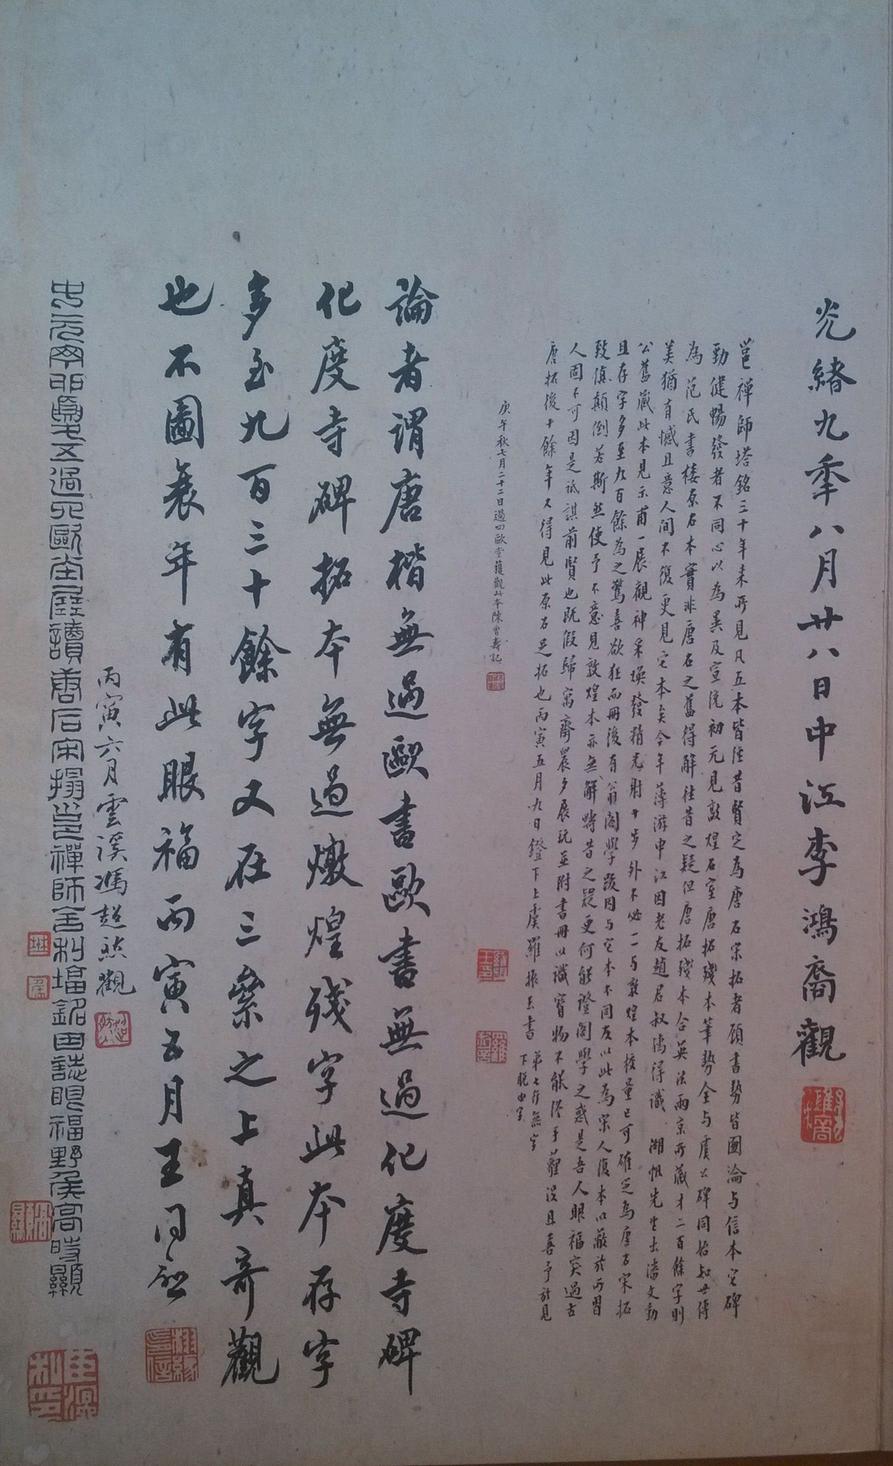 光緒九季八月廿八日中江李鴻裔觀
邕禪師塔銘三十年来所見凡五本皆往昔賢定為唐石宋拓者顧書勢皆圓淪与信本它碑
勁健暢發者不同心以為異及宣統初元見敦煌石室唐拓殘本筆勢全与虞公碑同始知世傳
為范氏書樓原石本實非唐石之舊得解往昔之疑但唐拓殘本合英法兩京所藏才二百餘字則
美猶有憾且意人間不復更見它本矣今年薄游申江因老友趙君叔孺得識湖帆先生出潘文勤
公舊藏此本見示甫一展觀神采煥發精光射十步外不必一一与敦煌本校量已可確定為唐石宋拓
且存字多至九百餘為之驚喜欲狂而冊後有翁閣學跋因与它本不同反以此為宋人復本以蔽於所習
致滇顛倒若斯然使予不意見敦煌本亦無解疇昔之疑更何能證閣學之惑是吾人眼福突過古
人固不可因是詆諆前賢也既假歸寓齋晨夕展玩並附書冊以識寶物不能終于薶没且喜予於見
唐拓後十餘年又得見此原石足拓也丙寅五月九日鐙下上虞羅振玉書
第七行無字下脱由字
庚午秋七月二十二日過四歐堂獲觀此本陳曾壽記
論者謂唐楷無過歐書歐書無過化度寺碑
化度寺碑拓本無過燉煌殘字此本存字
多至九百三十餘字又在三絫之上真奇觀
也不圖衰年有此眼福丙寅五月王同愈
丙寅六月雲溪馮超然觀
五過四歐堂 讀唐石宋搨邕禪師舍利塔銘田誌眼福野侯高時顯